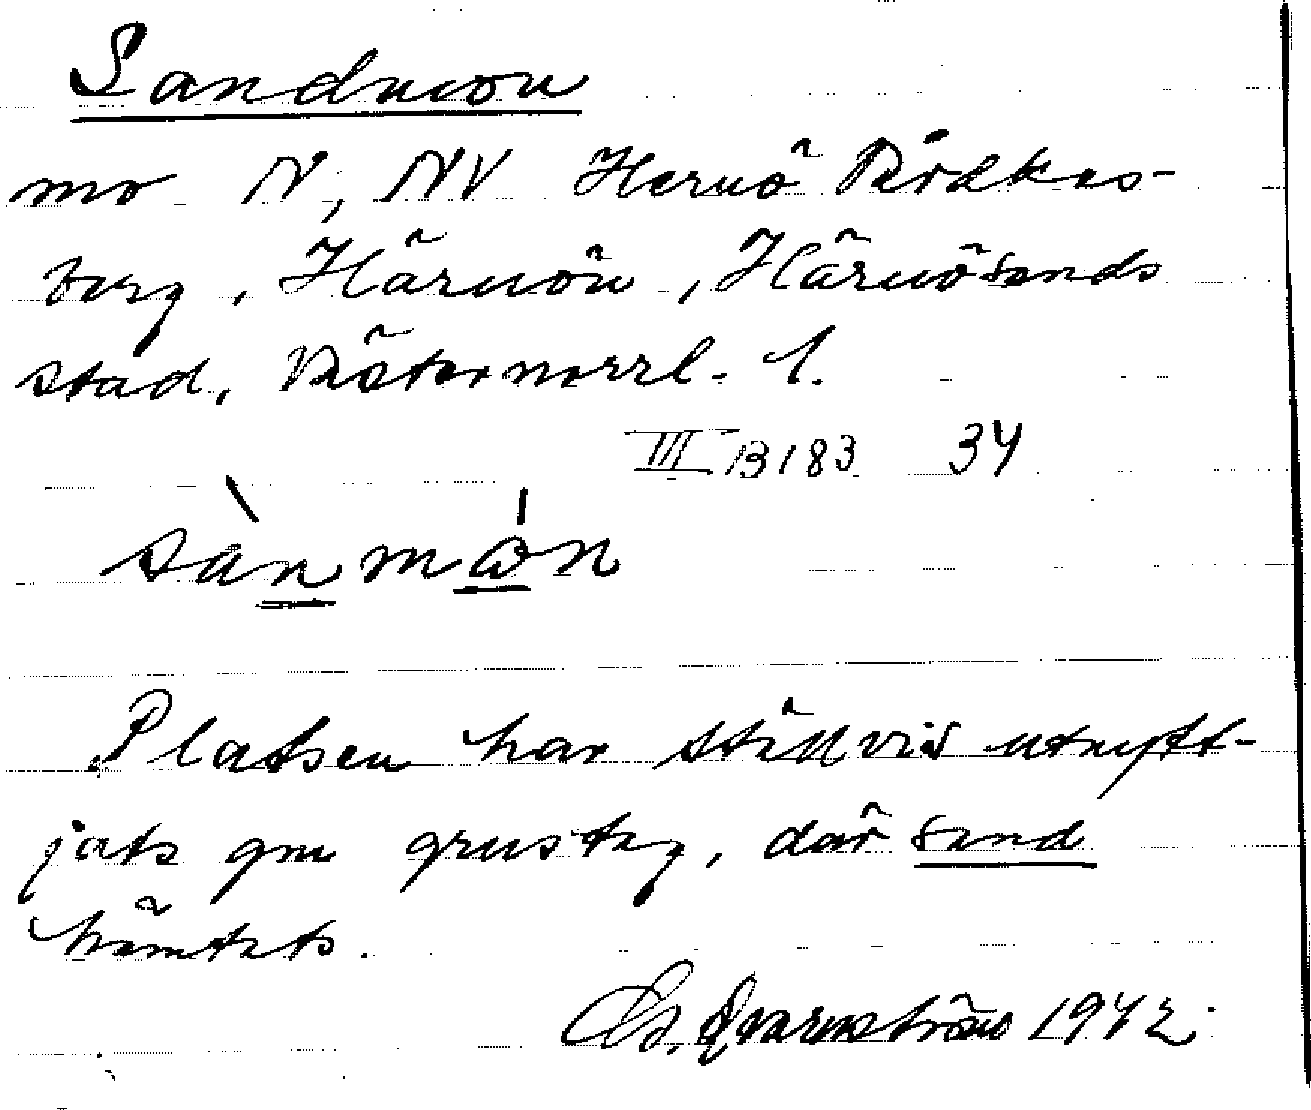 Sandmon
mo N, NV Hernö Vårdkas-
berg, Härnön, Härnösands
stad, Västernorrl. l.
III B 183 34
sànmón
Platsen har ställvis utnytt-
jats gm grustag, där sand
hämtats.
Qvarnström 1942.